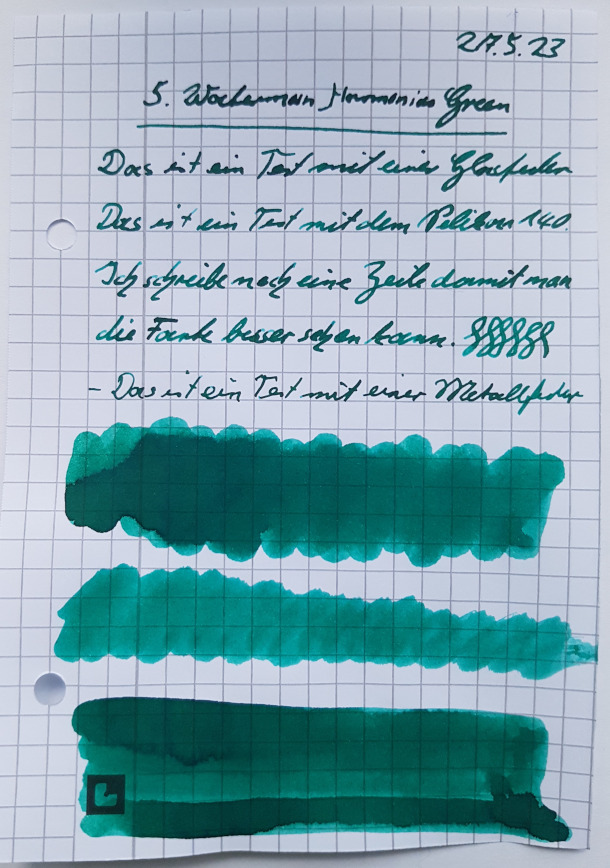 27.5.23
5. Waterman Harmonious Green
Das ist ein Test mit einer Glasfeder
Das ist ein Test mit dem Pelikan 140.
Ich schreibe noch eine Zeile damit man
die Farbe besser sehen kann.
- Das ist ein Test mit einer Metallfeder